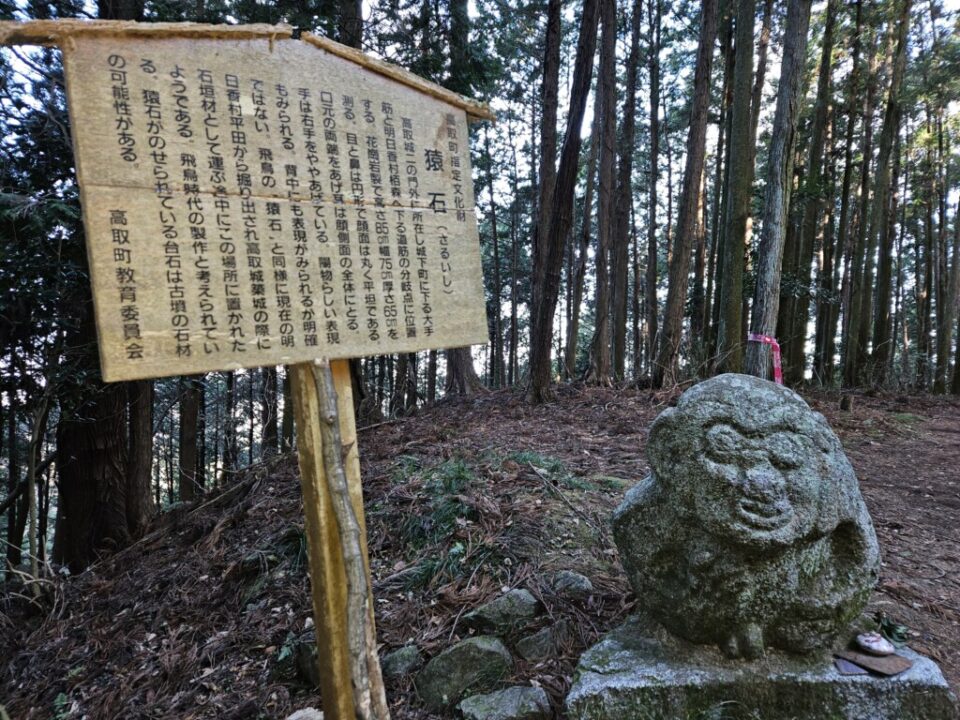 高取町指定文化財
猿石(さるいし)
高取城二の門外に所在し城下町に下る大手
筋と明日香村栢森へ下る道筋の分岐点に位置
する。花崗岩製で高さ85㎝幅75㎝厚さ65㎝を
測る。目と鼻は円形で顔面は丸く平坦である
口元の両端をあげ耳は顔側面の全体にとる。
手は右手をややあげている。陽物らしい表現
もみられる。背中にも表現がみられるが明確
ではない。飛鳥の「猿石」と同様に現在の明
日香村平田から掘り出され高取城築城の際に
石垣材として運ぶ途中にこの場所に置かれた
ようである。飛鳥時代の製作と考えられてい
る。猿石がのせられている台石は古墳の石材
の可能性がある。
高取町教育委員会